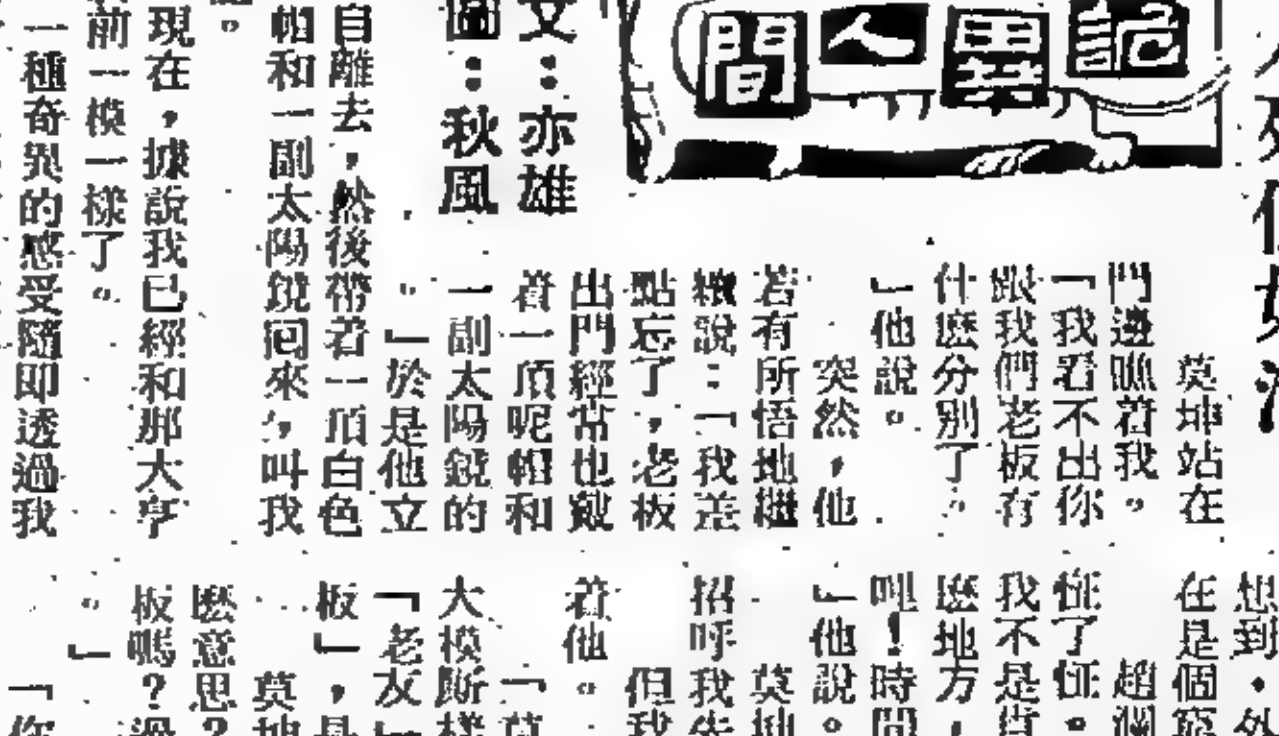 記異人間
文：亦雄
圖：秋風
莫坤站在
門邊瞧着我。
「我看不出你
跟我們老板有
什麽分別了。
」他說。
突然，他
若有所悟地繼
續說：「我差
點忘了，老板
出門經常也戴
着一頂呢帽和
一副太陽鏡的
。」於是他立
自離去，然後帶着一頂白色
帽和一副太陽鏡回來，叫我
。
現在，據說我已經和那大亨
前一模一樣了。
一種奇異的感受隨即透過我
想到，外
在是個窮
趙個
怔了怔。
我不是貨
麽地方，
哩！時間
」他說。
莫坤
招呼我先
但我
着他。
「莫
大模斯樣
「老友」
板」，是
莫坤
麽意思？
板嗎？過
。」
「你